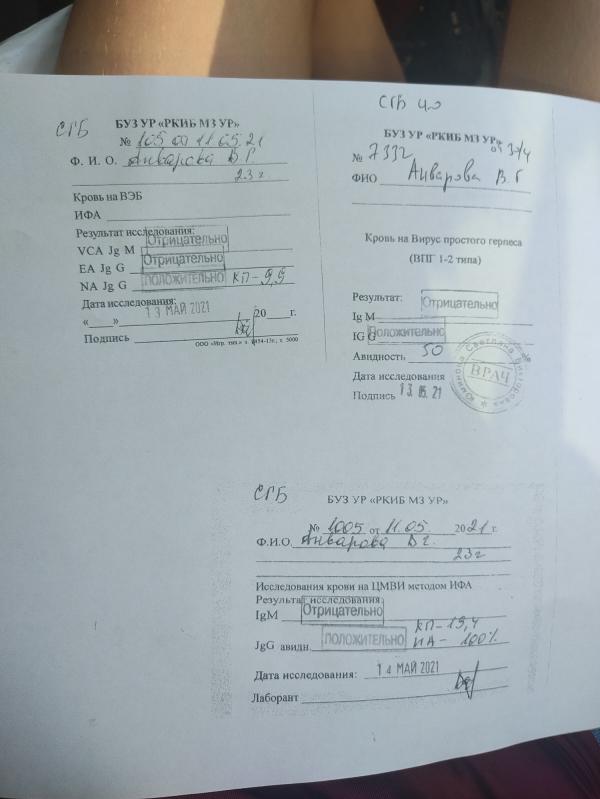 СГБ
БУЗ УР «РКИБ МЗ УР»
№ 105 от 11.05.21
Ф. И. О. Анварова В.Г.
23 г
Кровь на ВЭБ
ИФА
Результат исследования:
VCA Jg M Отрицательно
EA Jg G Отрицательно
NA Jg G ПОЛОЖИТЕЛЬНО КП-9,9
Дата исследования:
«___» 13 МАЙ 2021 20 г.
Подпись
СГБ
БУЗ УР «РКИБ МЗ УР»
№ 7332 от
ФИО Анварова В.Г
Кровь на Вирус простого герпеса
(ВПГ 1-2 типа)
Результат:
Ig M Отрицательно
IG G Положительно
Авидность 50
ВРАЧ
Дата исследования
Подпись 13.05.21
СГБ
БУЗ УР «РКИБ МЗ УР»
№ 1005 от 11.05. 2021 г.
Ф.И.О. Анварова В г.
23 г
Исследования крови на ЦМВИ методом ИФА
Результат исследования:
IgM Отрицательно
КП-19,4
JgG авидн. ПОЛОЖИТЕЛЬНО ИА- 100%
Дата исследования: 14 МАЙ 2021
Лаборант